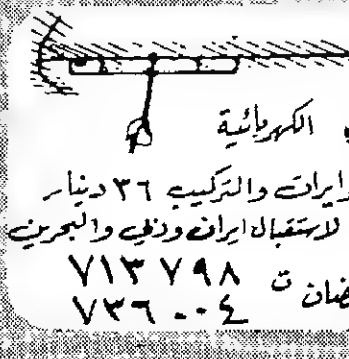 الكهربائية
وايران والتركيب ٣٦ دينار
لاستقبال ايران ودبي والبحرين
ت ٧١٣٧٩٨
٧٣٦٠٠٤